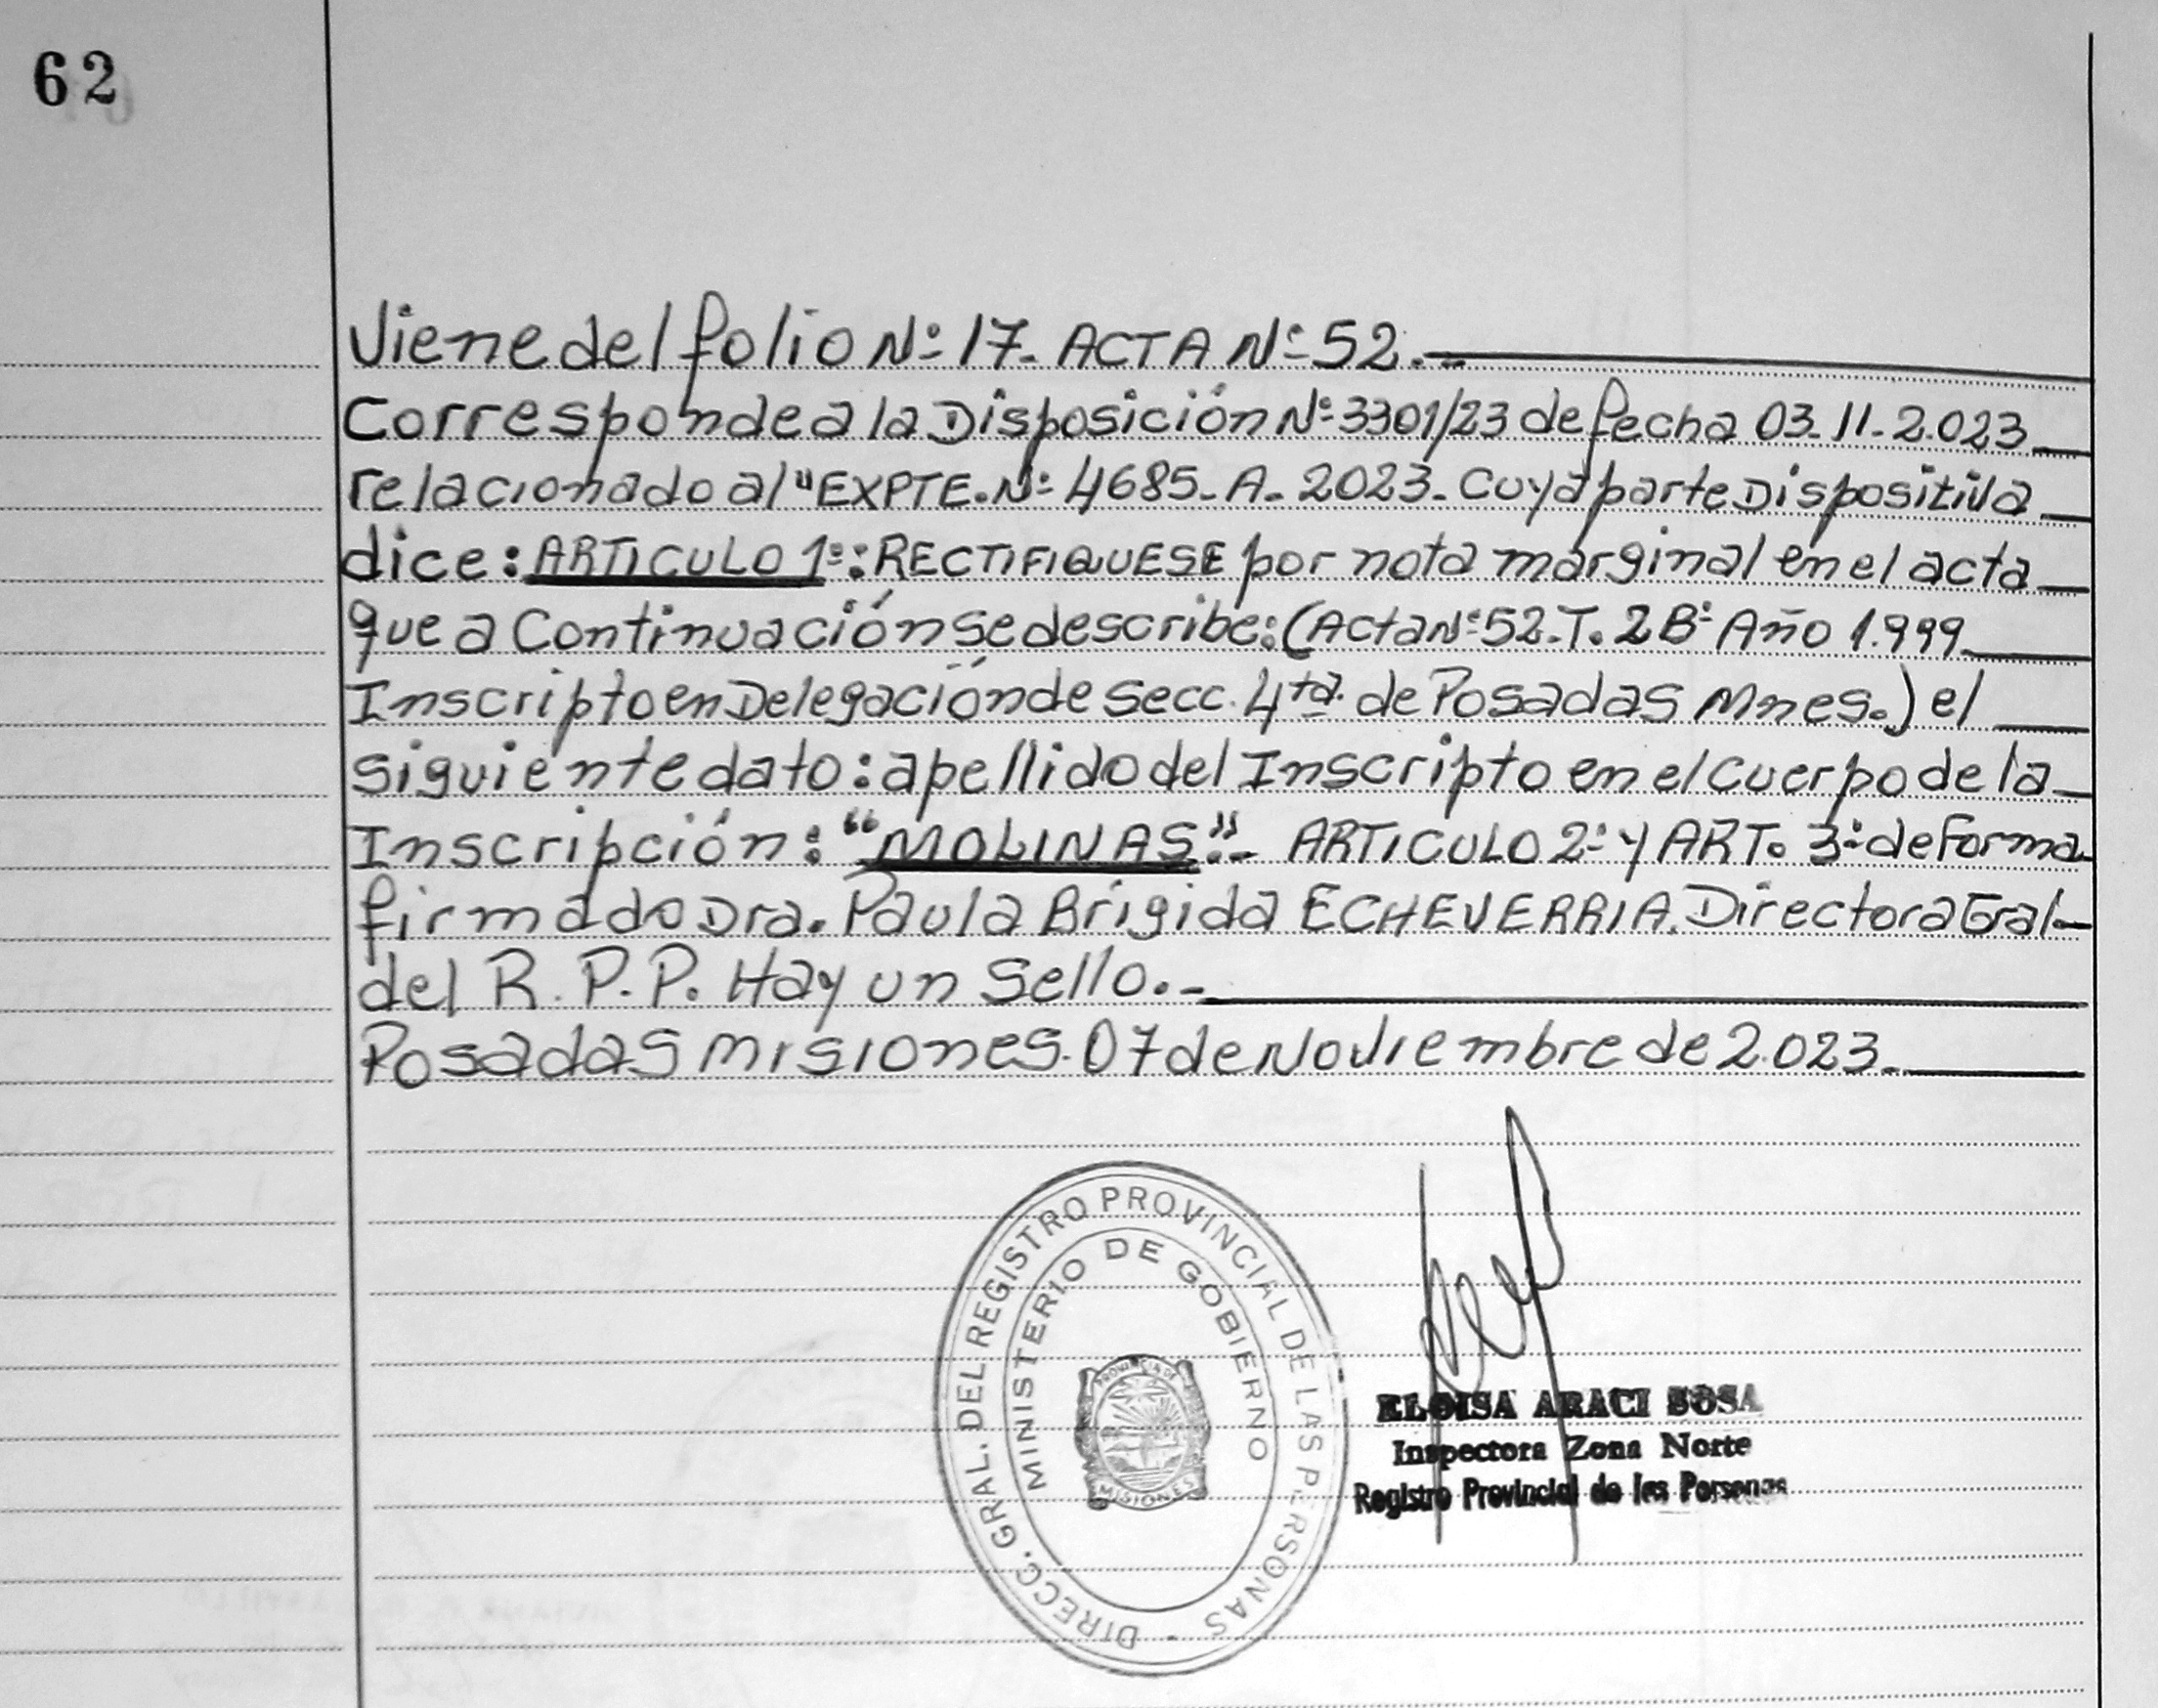 62
Viene del folio Nº 17. ACTA Nº 52.-
Corresponde a la Disposición Nº 3301/23 de fecha 03-11-2.023
relacionado al "EXPTE. Nº 4685-A-2023- Cuya parte Dispositiva
dice: ARTICULO 1º: RECTIFIQUESE por nota marginal en el acta
que a Continuación se describe: (Acta Nº 52-T. 2Bº Año 1.999
Inscripto en Delegación de Secc. 4ta. de Posadas Mnes.) el
siguiente dato: apellido del Inscripto en el Cuerpo de la
Inscripción: "MOLINAS".- ARTICULO 2º Y ART. 3º de Forma
firmado Dra. Paula Brígida ECHEVERRIA. Directora Gral-
del R.P.P. Hay un Sello.-
Posadas Misiones. 07 de Noviembre de 2.023.-
DIRECC. GRAL. DEL REGISTRO PROVINCIAL DE LAS PERSONAS -
MINISTERIO DE GOBIERNO
PROVINCIA DE
MISIONES
ELOISA ARACI SOSA
Inspectora Zona Norte
Registro Provincial de las Personas